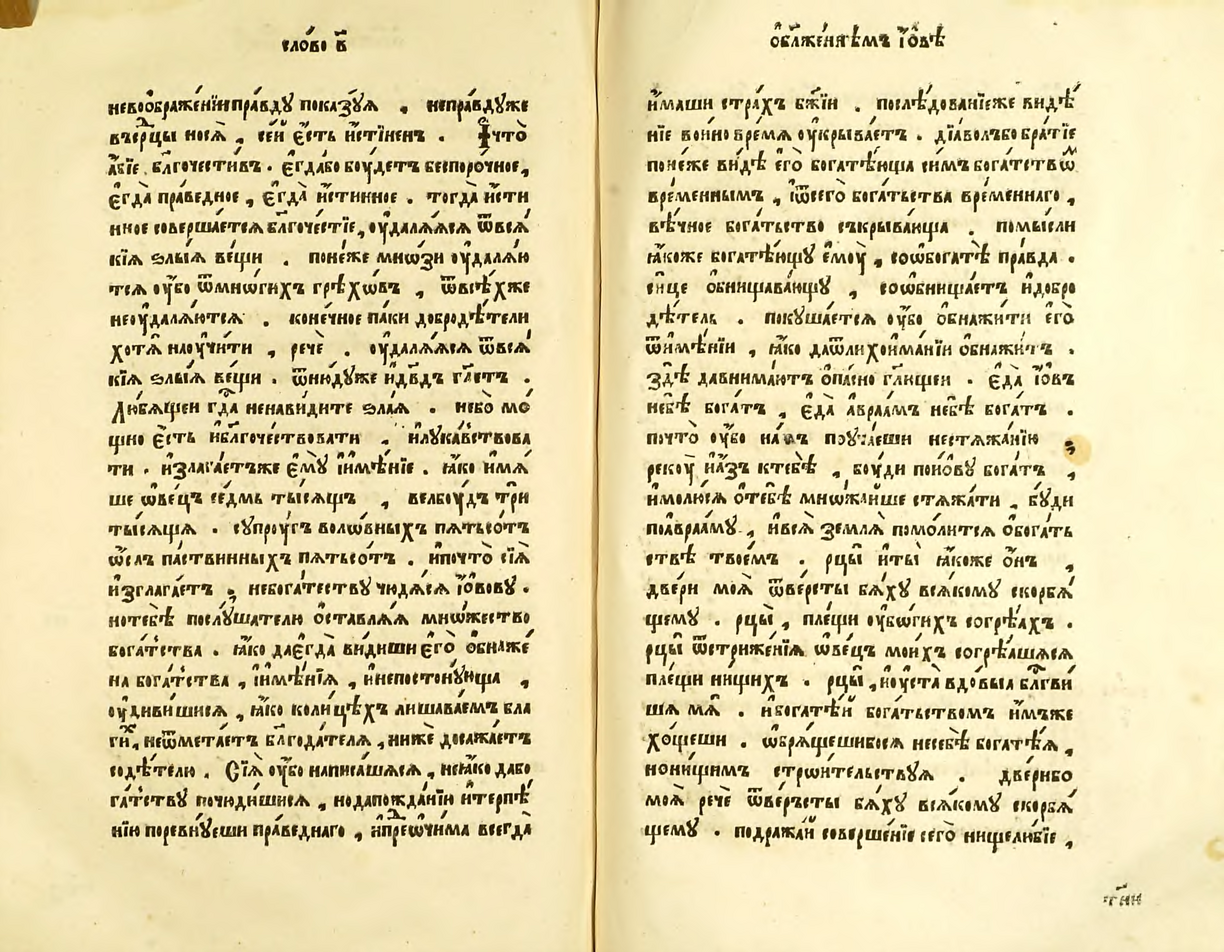 сло́во в҃
невоѡбраже́нїи пра́вду показу́ѧ , непра́вду же
въ се́рцы носѧ̀ , се́й є҆́сть и҆́стїненъ . и҆ что̀
а҆́бїе . бл҃гочести́въ . є҆гда́ бо бꙋ́детъ беспоро́чное ,
є҆гда̀ пра́ведное , є҆гда̀ и҆́стинное . тогда̀ и҆́сти
нное соверша́етсѧ бл҃гоче́стїе , ѹ҆далѧ́ѧсѧ ѿ всѧ́
кїѧ ѕлы́ѧ ве́щи . поне́же мно́ѕи ѹ҆далѧ́ю
тсѧ ѹ҆́бо ѿ мнѡ́гихъ грѣхѡ́въ , ѿ всѣ́хъ же
не ѹ҆далѧ́ютсѧ . коне́чное па́ки добродѣ́тели
хотѧ̀ наѹчи́ти , речѐ . ѹ҆далѧ́ѧсѧ ѿ всѧ́
кїѧ ѕлы́ѧ ве́щи . ѿню́дуже и҆ дв҃дъ гл҃етъ .
Лю́бѧщеи гд҃а ненави́дите ѕла́ѧ . не́бо мо
щно є҆́сть и҆ бл҃гоче́ствовати , и҆ лука́вствова
ти . и҆злага́етъ же є҆му̀ и҆мѣ́нїе . ꙗ҆́ко имѧ́
ше ѡ҆ве́цъ се́дмь ты́сѧщъ , велбꙋ́дъ трѝ
ты́сѧща . супрꙋ́гъ волѡ́вныхъ пѧ́тьсо́тъ
ѡ҆слъ па́ствинныхъ пѧтьсо́тъ . и҆ почто̀ сїѧ̀
и҆злага́етъ , не бога́теству чюдѧ́сѧ і҆ѡ́вову .
но тебѣ̀ послу́шателю ѡ҆ставлѧ́ѧ мно́жество
бога́тства . ꙗ҆́ко да є҆гда̀ ви́диши є҆го̀ ѡ҆бнаже
на бога́тства , и҆ имѣ́нїѧ , и҆ непосто́нующа ,
ѹ҆диви́шисѧ , ꙗ҆́ко коли́цѣхъ лиша́вемъ бла
ги́х , не ѿмета́етъ бл҃года́телѧ , ниже досажа́етъ
содѣ́телю . Сїѧ̀ ѹ҆́бо написа́шѧсѧ , не ꙗ҆́ко да бо
га́тству почюди́шисѧ , но да пожда́нїю и҆ терпѣ́
нїю поревну́еши пра́веднаго , и҆ преѡ҆чи́ма всегда̀
ѡ҆ блаже́ннѣмъ і҆ѡ́вѣ
и҆́маши стра́хъ бж҃їи . послѣ́дованїе же видѣ́
нїе во и҆но вре́мѧ ѹ҆крыва́етъ . дїа́волъ бо бра́тїе
поне́же ви́дѣ є҆го̀ богатѣ́юща симъ бога́тствѡм
вре́меннымъ , і҆ ѿ сего̀ бога́тьства вре́меннаго ,
вѣ́чное бога́тьство съкрыва́юща . помы́сли
ꙗ҆́коже богатѣ́ющу є҆мꙋ̀ , соѡбога́тѣ пра́вда .
си́це ѡ҆бнищава́ющу , соѡбнища́етъ и҆ добро
дѣ́тель . покуша́етсѧ ѹ҆́бо ѡ҆бнажи́ти є҆го̀
ѿ имѣ́нїи , ꙗ҆́ко да ѿ лихоима́нїи ѡ҆бнажи́тъ .
здѣ̀ да внима́ютъ ѡ҆па́сно гл҃ющеи . є҆да̀ і҆ѡ́въ
не бѣ̀ бога́тъ , є҆да̀ а҆враа́мъ не бѣ̀ бога́тъ .
почто̀ ѹ҆́бо на́съ поуча́еши нестѧжа́нїю
рекꙋ̀ и҆ а҆́зъ к тебѣ̀ , бꙋ́ди по і҆ѡ́ву бога́тъ ,
и҆ молю́сѧ ѡ҆ тебѣ̀ мно́жаише стѧжа́ти , бу́ди
по а҆враа́му , и҆ всѧ̀ землѧ̀ помо́литсѧ ѡ҆ бога́ть
ствѣ твое́мъ . рцы̀ и҆ ты̀ ꙗ҆́коже ѻ҆́нъ ,
две́ри моѧ̀ ѿве́рсты бѧ́ху всѧ́кому скорбѧ́
щему . рцы̀ , пле́щи ѹ҆бо́гихъ согрѣ́ахъ .
рцы̀ ѿ стриже́нїѧ ѡ҆ве́цъ мои́хъ согрѣ́ашѧсѧ
пле́щи ни́щихъ . рцы̀ , и҆ ѹста̀ вдовы́ѧ бл҃гви́
шѧ мѧ̀ . и҆ богатѣ́и бога́тьствомъ и҆́мъже
хо́щеши . ѡ҆брѧ́щеши бо сѧ не себѣ̀ богатѣ́ѧ ,
но ни́щимъ строи́тельствуѧ . две́ри бо
моѧ̀ речѐ ѿве́ръсты бѧ́ху всѧ́кому скорбѧ́
щему . подража́й соверше́нїе сего̀ нищелю́бїе ,